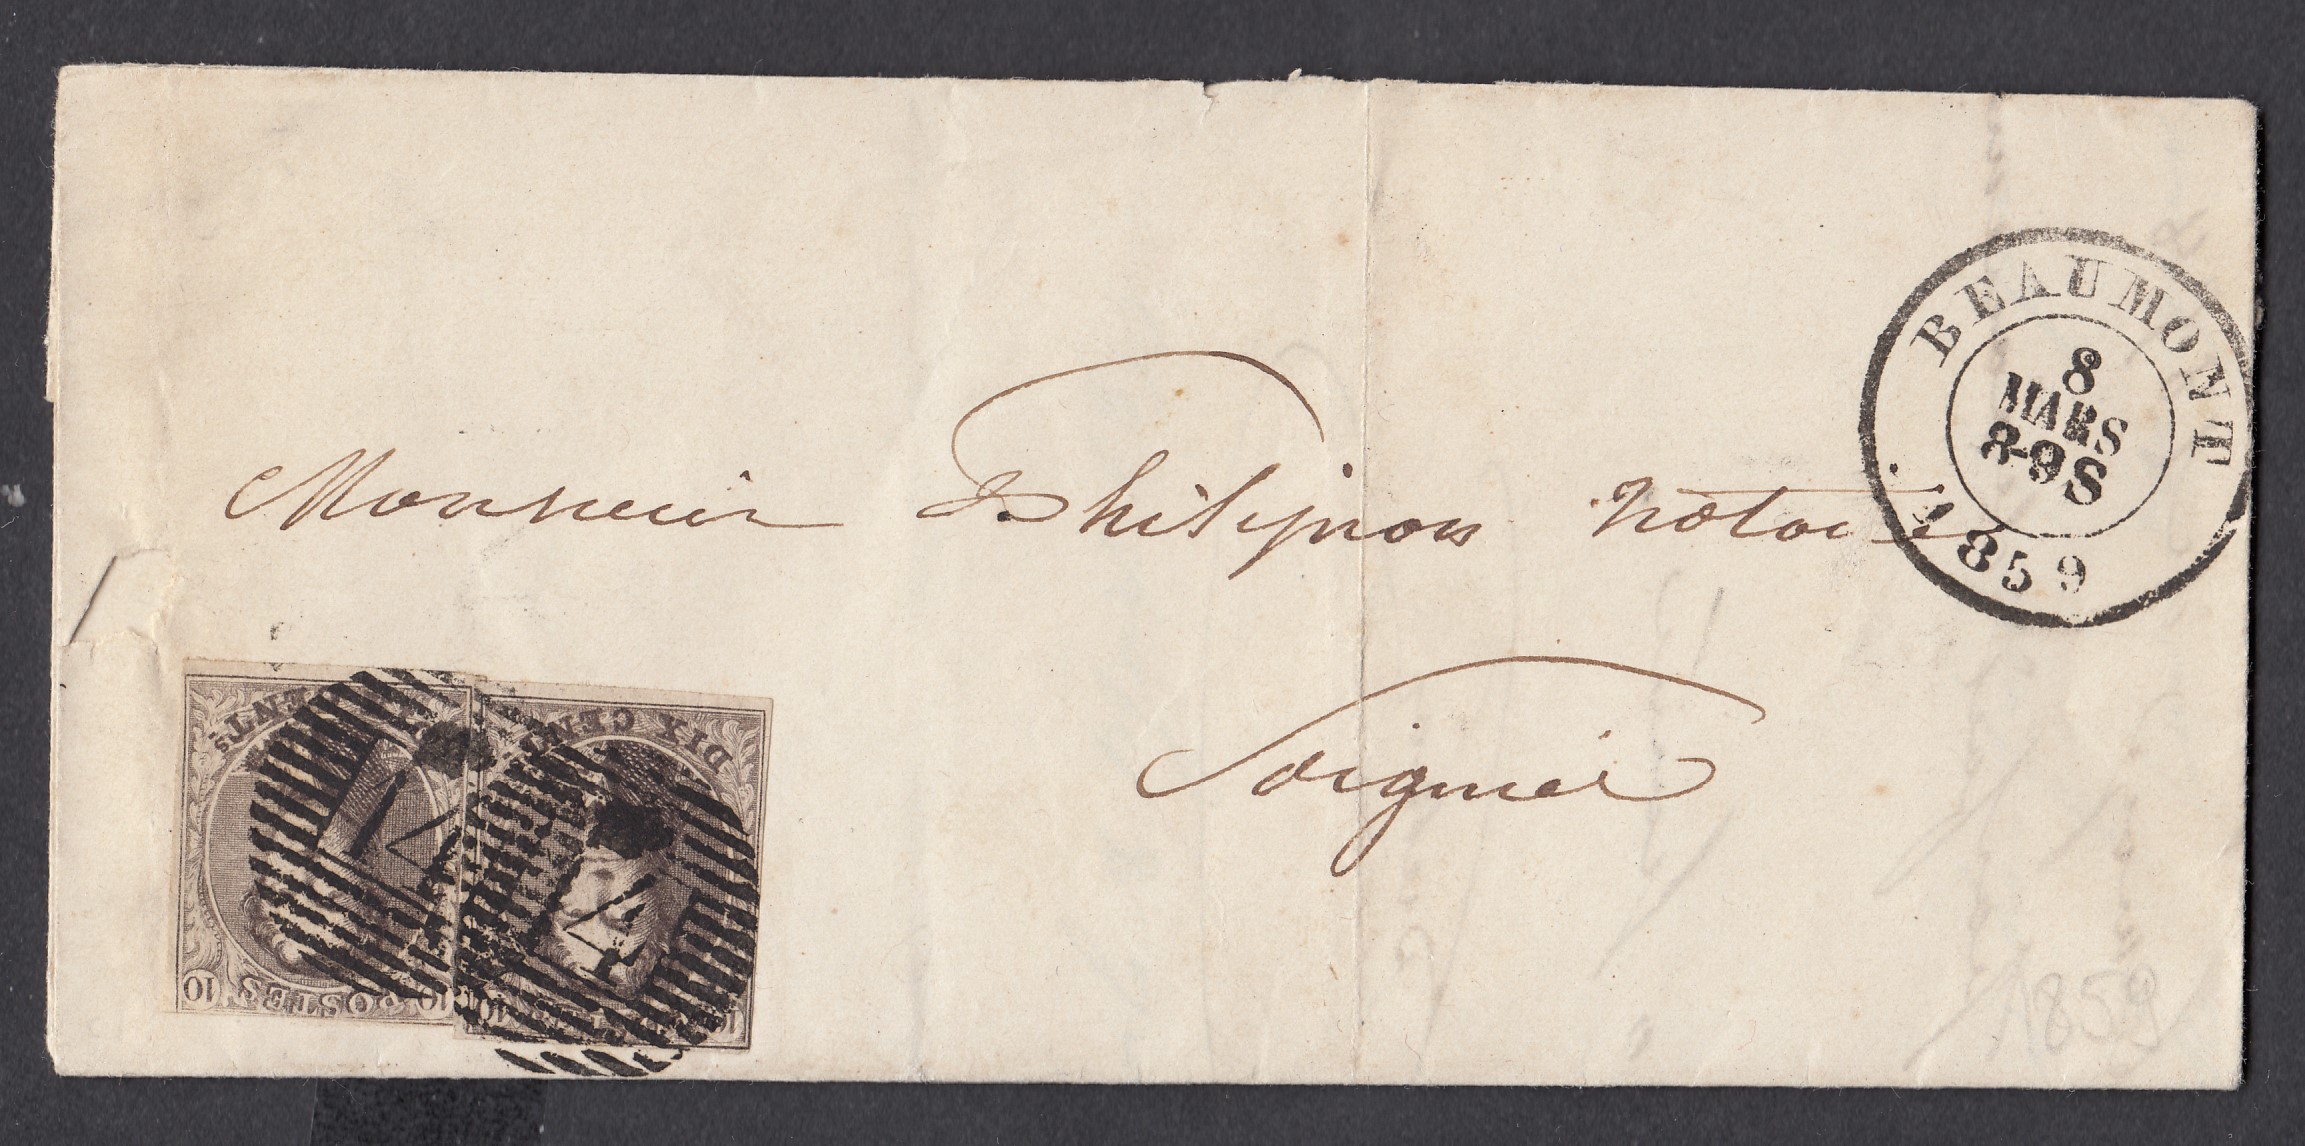 BEAUMONT
8
MARS
8-9S
1859
Monsieur Philipron notaire
Soignies
DIX CENTS
POSTES
10
10
10
1859